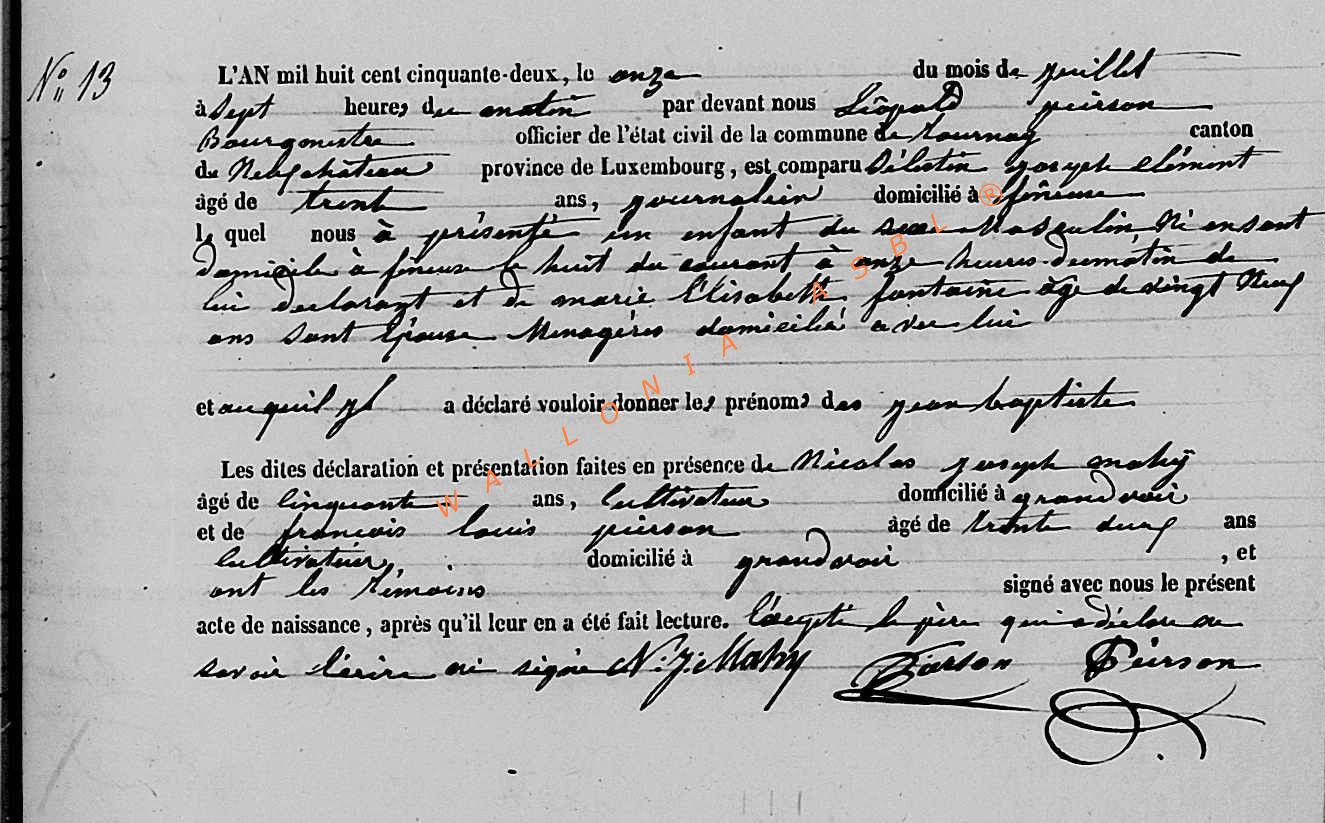 N° 13
L'AN mil huit cent cinquante-deux, le onze du mois de juillet
à Sept heures du matin par devant nous Léopold peirson
Bourgmestre officier de l'état civil de la commune de tournay canton
de Neufchâteau province de Luxembourg, est comparu Célestin joseph Clément
âgé de trente ans, journalier domicilié à fineuse
lequel nous à présenté un enfant du sexe Masculin Né en sont
domicile à fineuse le huit du courant à onze heures dumatin de
lui declarant et de marie Elisabeth fontaine âge de vingt Neuf
ans sont Epouse Menagères domicilié avec lui
et auquil il a déclaré vouloir donner les prénoms des jean baptiste
Les dites déclaration et présentation faites en présence de Nicolas joseph mahy
âgé de Cinquante ans, Cultivateur domicilié à grandvoir
et de francois louis peirson âgé de trente deux ans
Cultivateur, domicilié à grandvoir , et
ont les témoins signé avec nous le présent
acte de naissance, après qu'il leur en a été fait lecture. Excepté le père qui a déclare ne
savoir l'écrire ni signé N. J. Mahy Pierson Peirson
WALLONIA ASBL ®